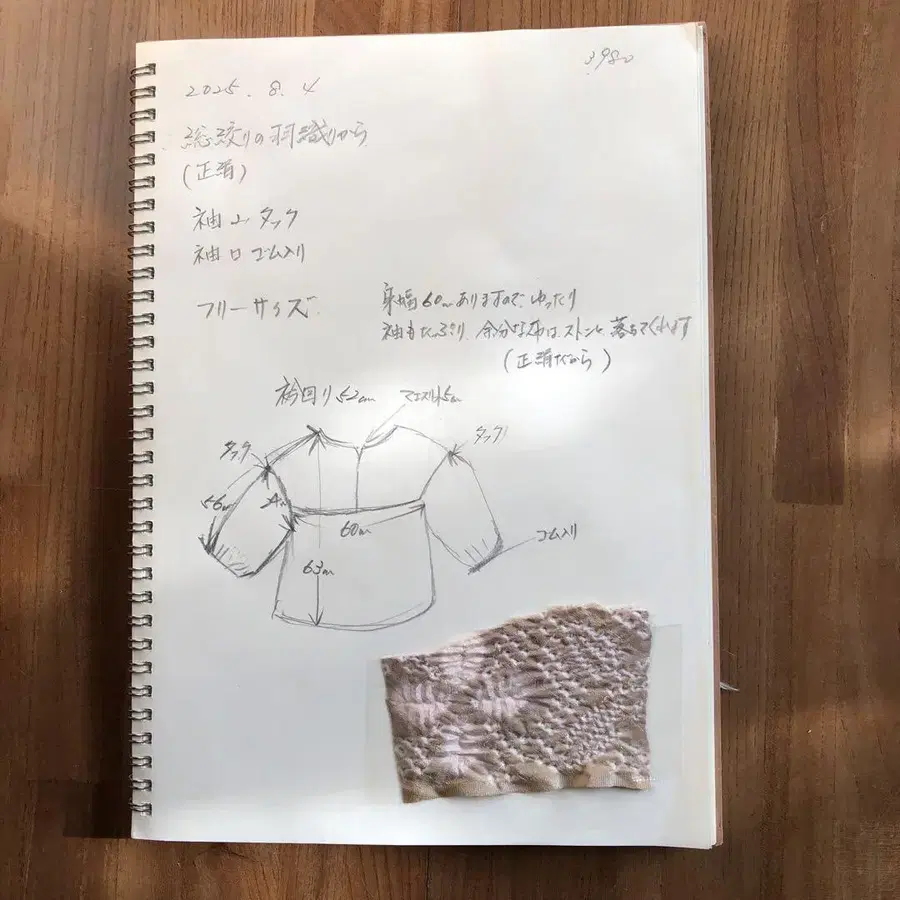 3980
2025. 8. 4
総絞りの羽織りから
(正絹)
袖山タック
袖口ゴム入り
フリーサイズ
身幅60cmありますので、ゆったり
袖もたっぷり、余分な布はストンと落ちてくれます
(正絹だから)
衿回り52cm
タック
タック
56cm
60cm
ゴム入り
63cm